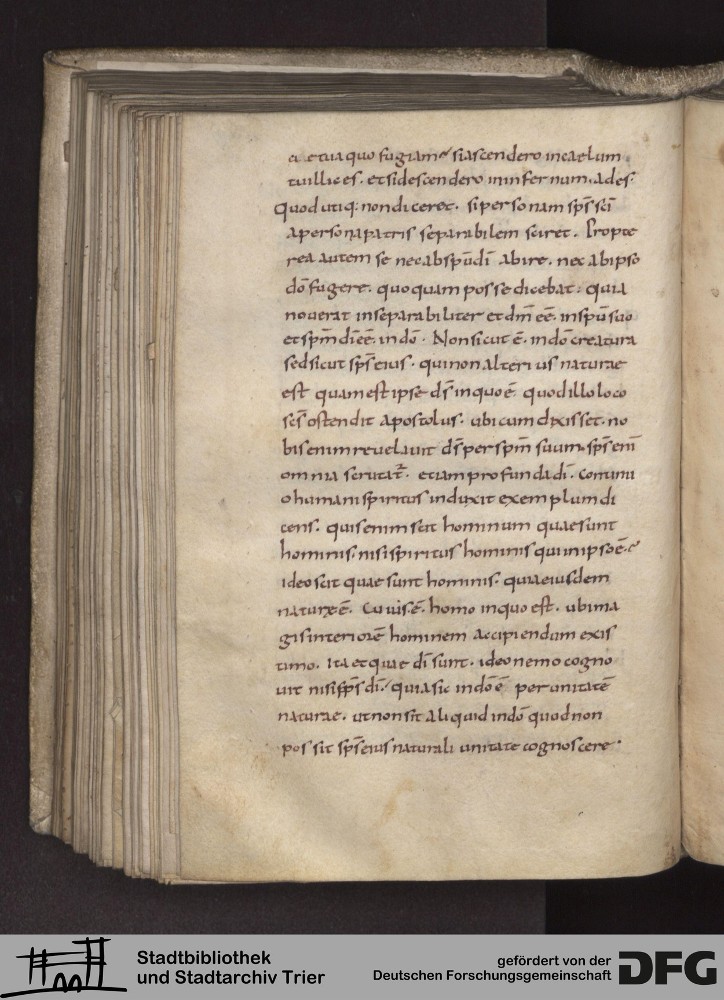 a& tua quo fugiam? si ascendero in caelum.
tu illic es. et si descendero in infernum. ades.
Quod utiq: non diceret. si personam sp̄s sc̄i
a persona patris separabilem sciret. Propte
rea autem se nec ab sp̄u dī abire. nec ab ipso
dō fugere. quoquam posse dicebat: quia
noverat inseparabiliter et dm̄ eē. in sp̄u suo
et sp̄m dī eē. in dō. Non sicut ē. in dō creatura
sed sicut sp̄s eius. qui non alterius naturae
est quam est ipse ds̄ in quo ē. quod illo loco
sc̄s ostendit apostolus. ubi cum dixisset. no
bis enim revelavit ds̄ per sp̄m suum. sp̄s enī
omnia scrutat̄. etiam profunda dī. Continu
o humani spiritus induxit exemplum di
cens. quis enim scit hominum quae sunt
hominis. nisi spiritus hominis qui in ipso ē.
ideo scit quae sunt hominis. quia eiusdem
naturae ē. Cuius ē. homo in quo est. ubi ma
gis interiorē hominem accipiendum exis
timo. Ita et quae dī sunt. ideo nemo cogno
vit nisi sp̄s dī. quia sic in dō ē per unitatē
naturae. ut non sit aliquid in dō quod non
possit sp̄s eius naturali unitate cognoscere.
Stadtbibliothek
und Stadtarchiv Trier
gefördert von der
Deutschen Forschungsgemeinschaft
DFG